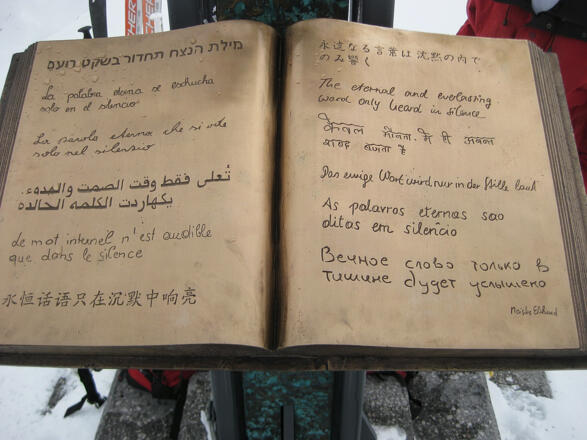 FISCHER
מילת הנצח תחדור בשקט רועם
La palabra eterna se escucha
solo en el silencio
La parola eterna che si ode
solo nel silenzio
تُعلى فقط وقت الصمت والهدوء.
الكلمه الخالده
de mot internel n'est audible
que dans le silence
永恒话语只在沉默中响亮
永遠なる言葉は沈黙の内で
のみ響く
The eternal and everlasting
word only heard in silence
केवल मौनता में ही
शब्द बजता है
Das ewige Wort wird nur in der Stille laut
As palavros eternas sao
ditas em silencio
Вечное слово только в
тишине будет услышено